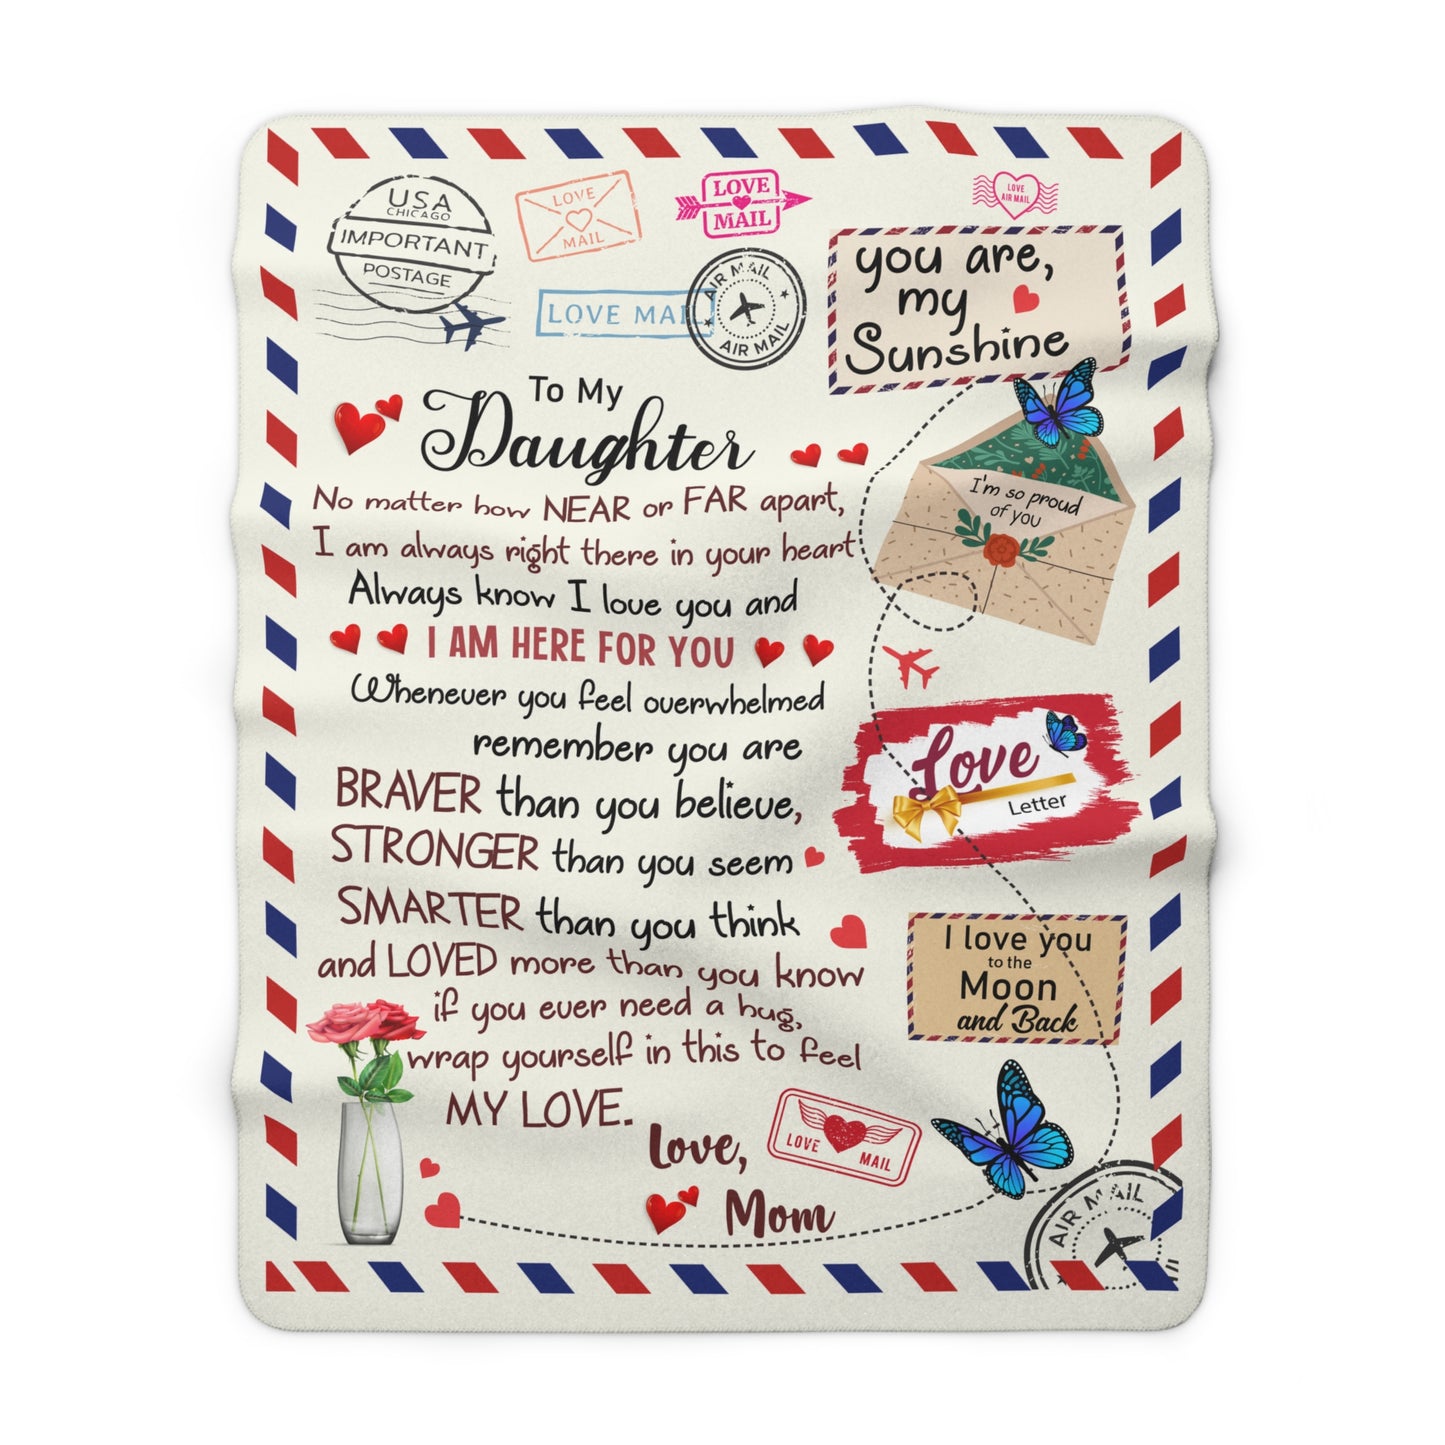 USA
CHICAGO
IMPORTANT
POSTAGE
LOVE
MAIL
LOVE
MAIL
LOVE
AIR MAIL
LOVE MAIL
AIR MAIL
AIR MAIL
you are,
my
Sunshine
To My
Daughter
I'm so proud
of you
No matter how NEAR or FAR apart,
I am always right there in your heart
Always know I love you and
I AM HERE FOR YOU
Whenever you feel overwhelmed
remember you are
BRAVER than you believe,
STRONGER than you seem
SMARTER than you think
and LOVED more than you know
if you ever need a hug,
wrap yourself in this to feel
MY LOVE.
Love,
Mom
Love
Letter
I love you
to the
Moon
and Back
LOVE
MAIL
AIR MAIL